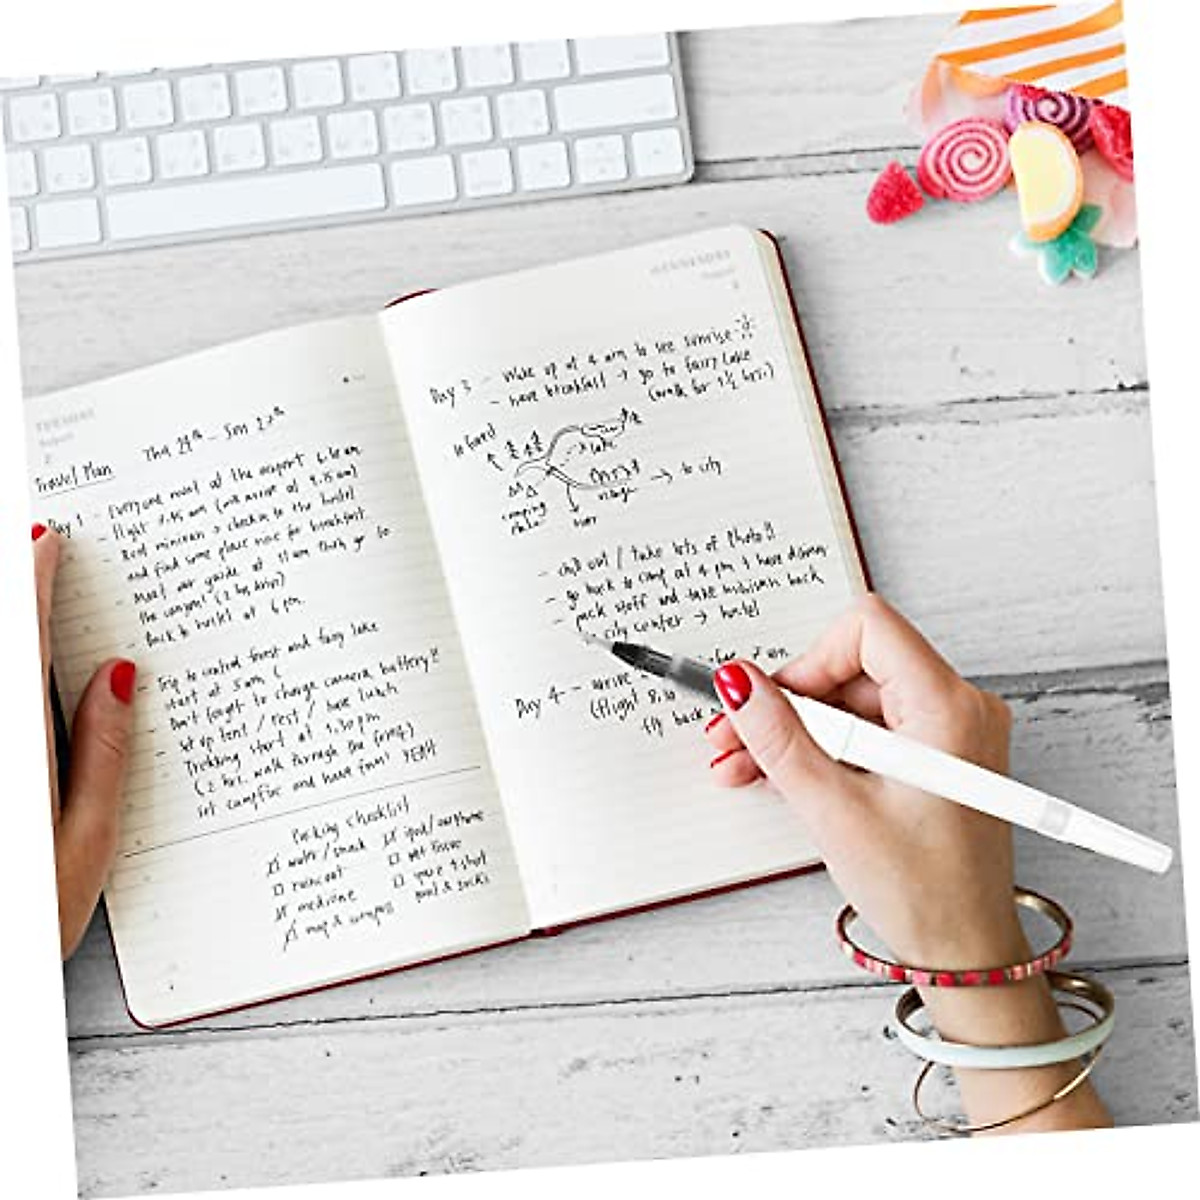 TUESDAY
August
2
Thu 24th - Sun 27th
Travel Plan
Day 1 - Everyone meet at the airport 6.10 am
- flight 7.45 am (will arrive at 9.15 am)
- Rent minivan → check in to the hostel
and find some place nice for breakfast
- Meet our guide at 11 am then go to
the campsite (2 hrs drive)
- Back to hostel at 6 pm.
- Trip to central forest and fairy lake
start at 5 am
- Don't forget to charge camera battery!!
- Set up tent / rest / have lunch
- Trekking start at 1.30 pm
(2 hrs. walk through the forest)
set campfire and have fun! YEAH
Packing Checklist
water / snack
raincoat
medicine
map & compass
ipod / earphone
wet tissue
spare t-shirt
and & socks
WEDNESDAY
August
Day 3 - Wake up at 4 am to see sunrise
- have breakfast → go to fairy lake
(walk for 1½ hrs.)
to forest
lake
village
→ to city
camping
river
- chill out / take lots of Photo!!
- go back to camp at 4 pm & have dinner
- pack stuff and take minivan back
to city center → hostel
Day 4 - arrive
(flight 8.10
fly back